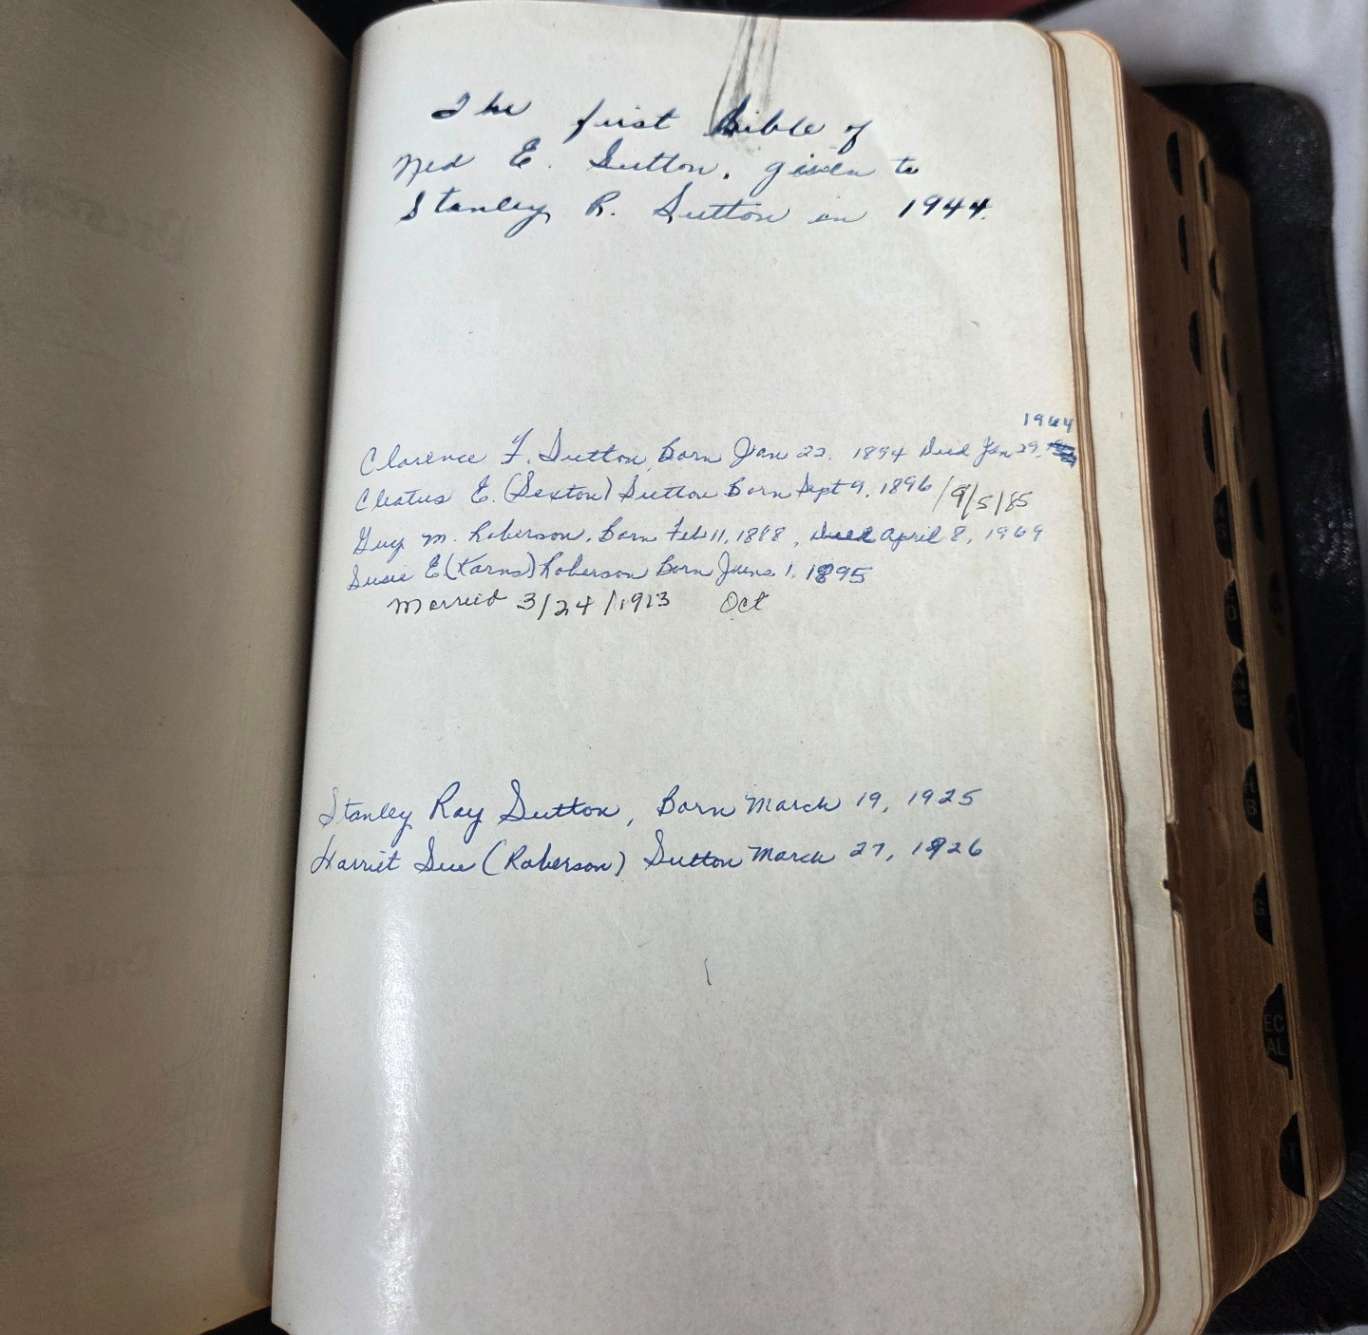 The first Bible of
Ned E. Sutton, given to
Stanley R. Sutton in 1944.
1964
Clarence F. Sutton, Born Jan 22, 1894 Died Jan 29,
Cleatus E. (Sexton) Sutton Born Sept 9, 1896 / 9/5/85
Guy M. Roberson, Born Feb 11, 1888, Died April 8, 1969
Susie E (Karns) Roberson Born June 1, 1895
Married 3/24/1913 Oct
Stanley Ray Sutton, Born March 19, 1925
Harriet Sue (Roberson) Sutton March 27, 1926
EC
AL